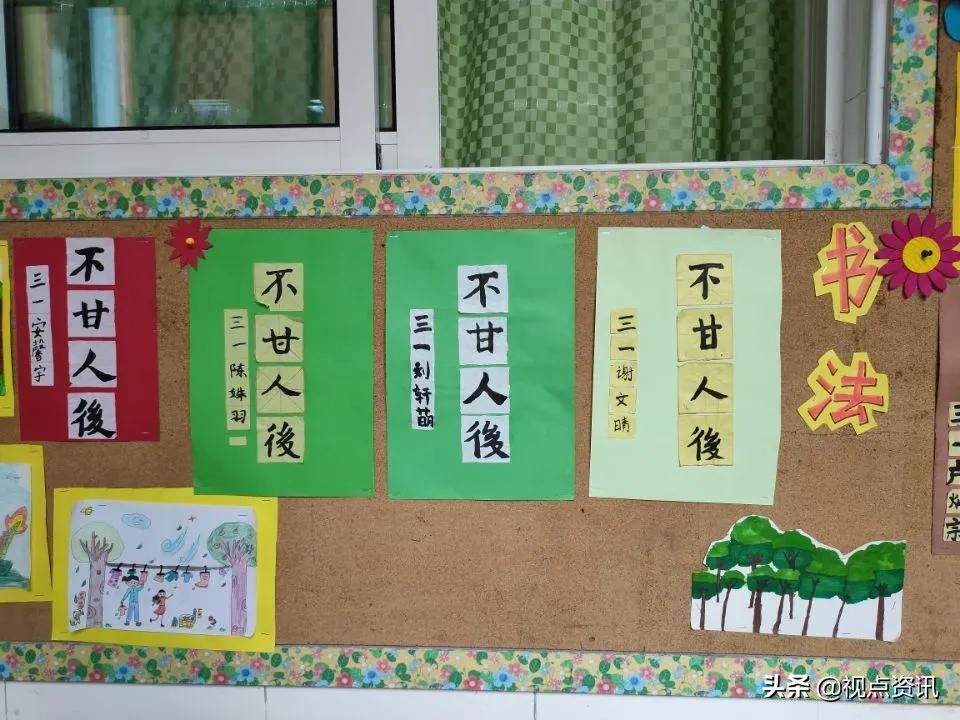 不甘人後
三一安馨字
不甘人後
三一陈姝羽
不甘人後
三一刘轩萌
不甘人後
三一谢文晴
书法
三一卢
头条 @视点资讯